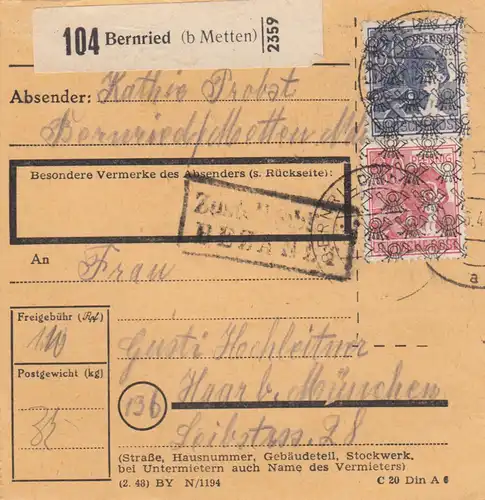 104 Bernried (b Metten) 2359
Absender: Kathie Probst
Bernried/Metten
Besondere Vermerke des Absenders (s. Rückseite):
BEZAHLT
An
Frau
Freigebühr (Rpf)
110
Gusti Hochleitner
Postgewicht (kg)
13b
Haar b. München
Leibstrass. 28
(Straße, Hausnummer, Gebäudeteil, Stockwerk,
bei Untermietern auch Name des Vermieters)
(2. 48) BY N/1194
C 20 Din A 6
a